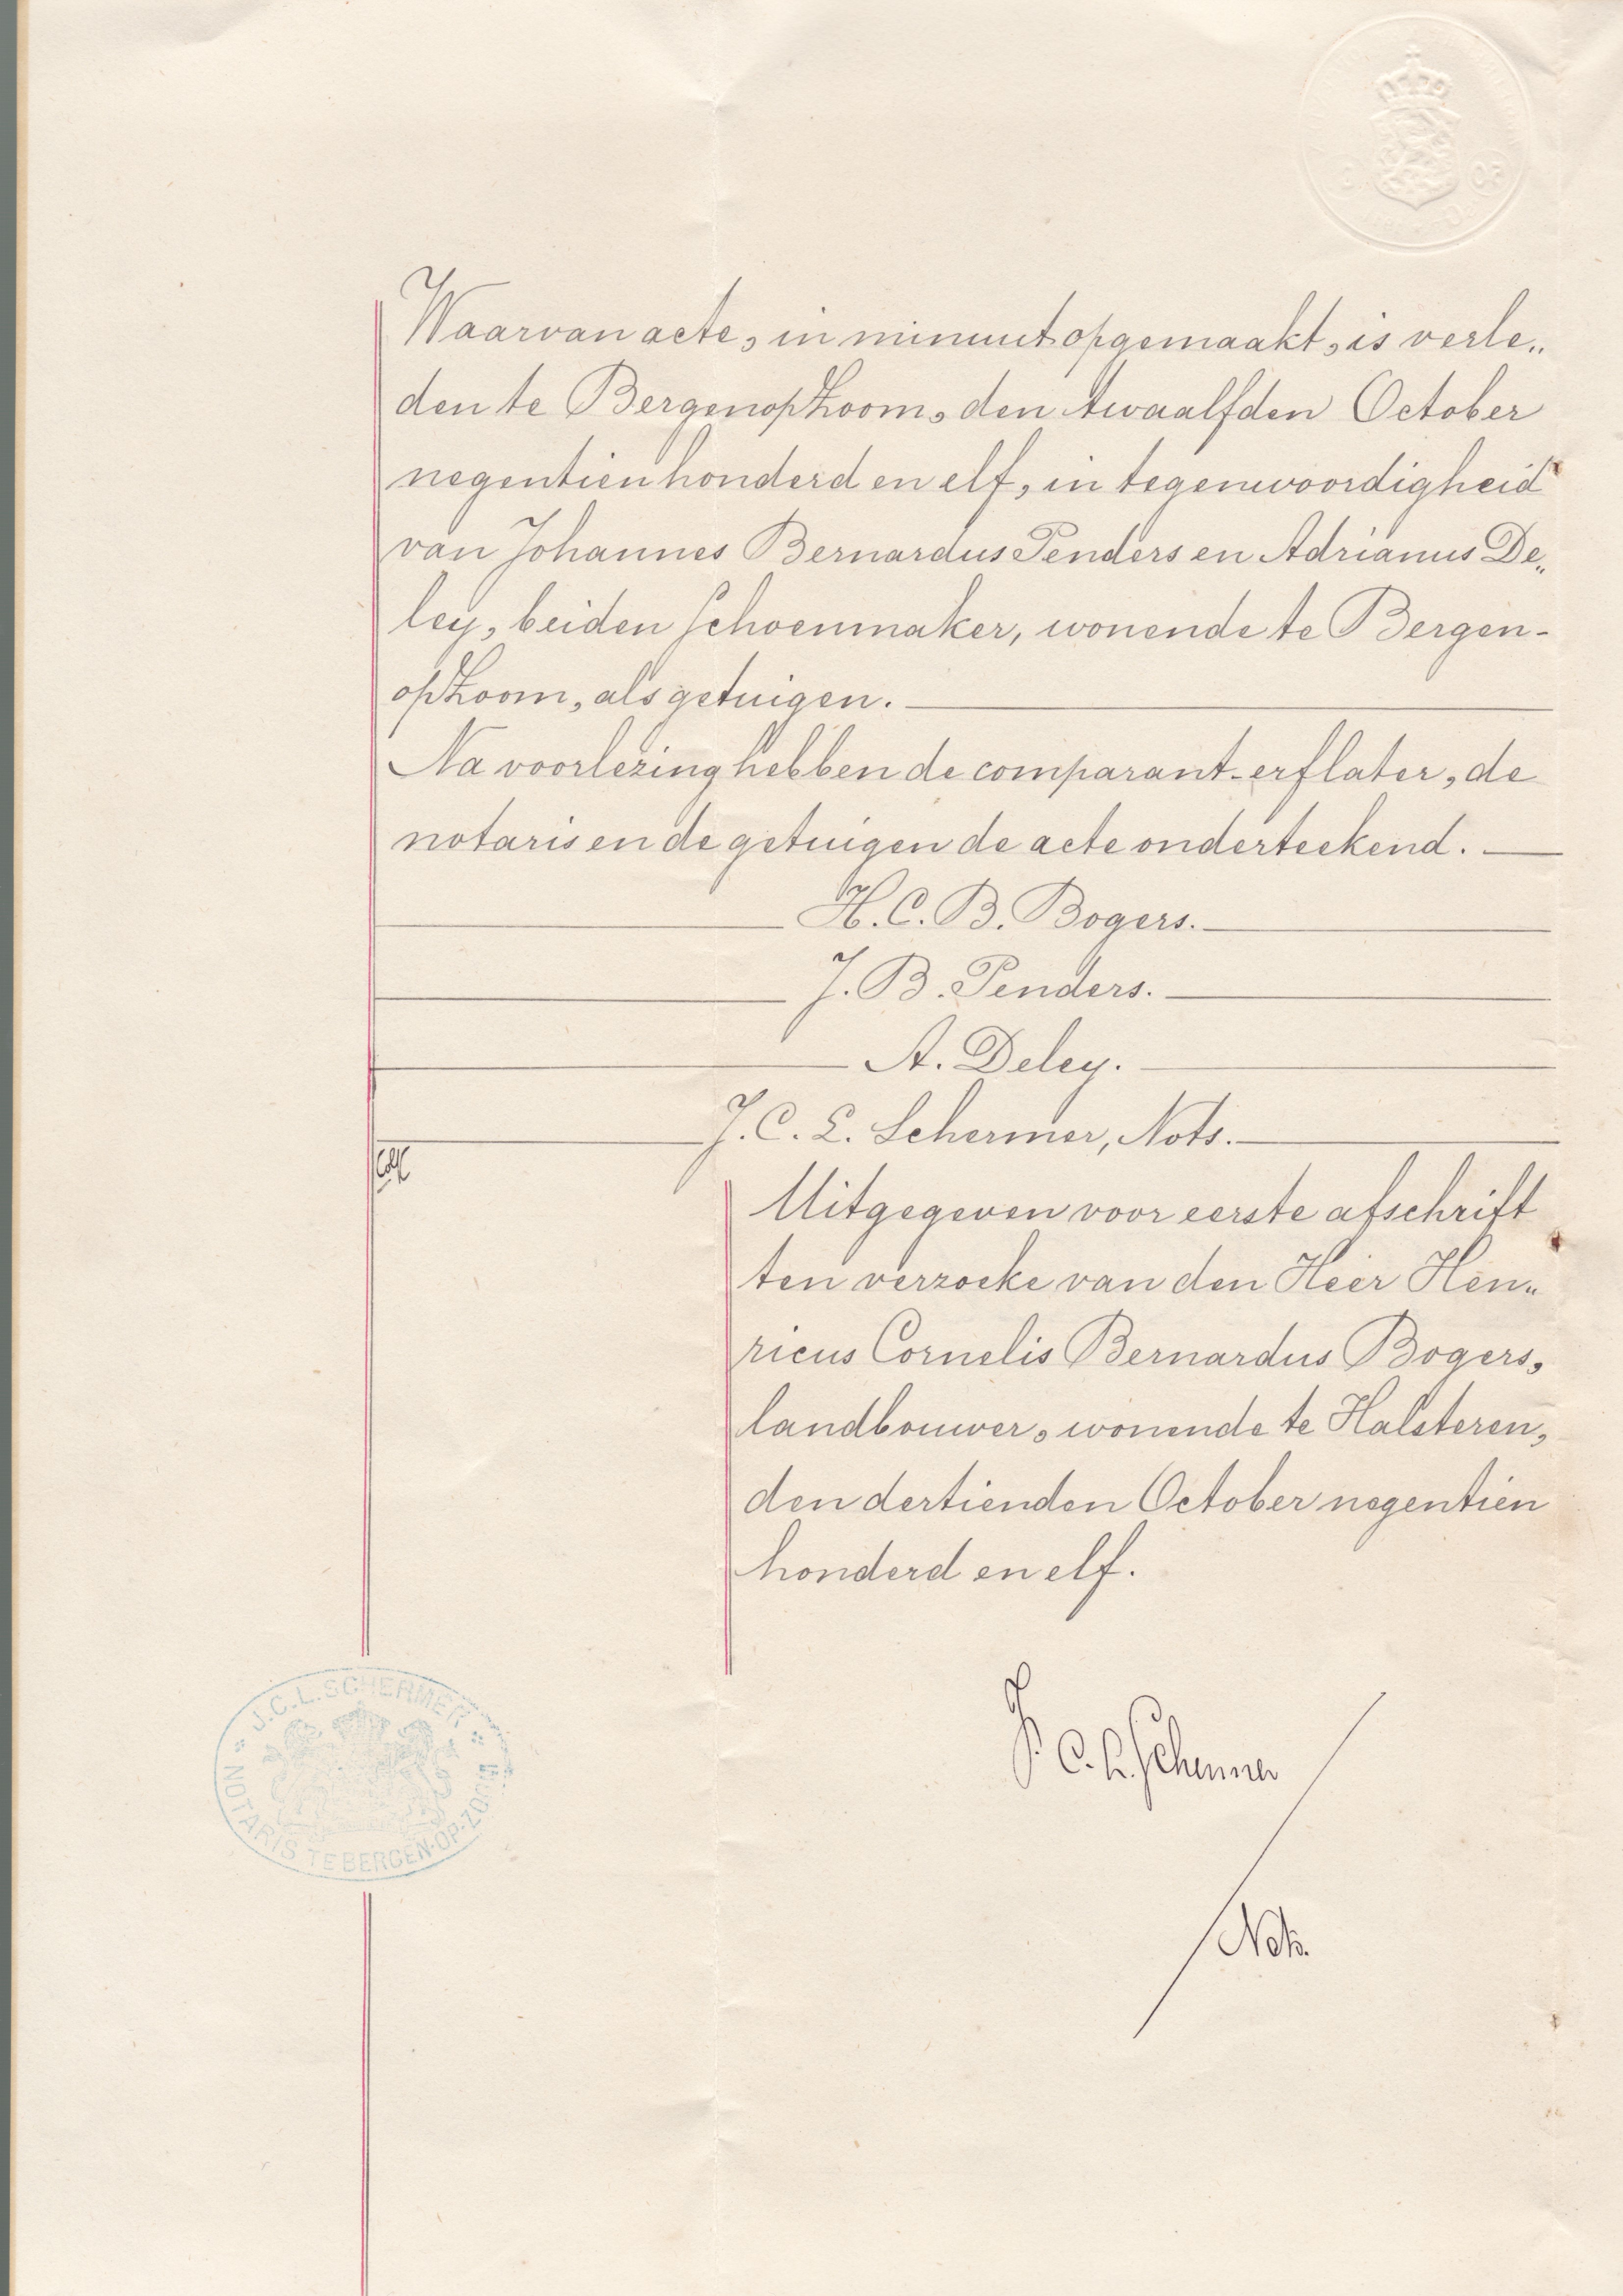 Waarvan acte, in minuut opgemaakt, is verle„
den te Bergenopzoom, den twaalfden October
negentienhonderd en elf, in tegenwoordigheid
van Johannes Bernardus Penders en Adrianus De„
ley, beiden schoenmaker, wonende te Bergen-
opzoom, als getuigen.
Na voorlezing hebben de comparant-erflater, de
notaris en de getuigen de acte onderteekend.
H. C. B. Bogers.
J. B. Penders.
A. Deley.
J. C. L. Schermer, Nots.
Uitgegeven voor eerste afschrift
ten verzoeke van den Heer Hen„
ricus Cornelis Bernardus Bogers,
landbouwer, wonende te Halsteren,
den dertienden October negentien
honderd en elf.
J. C. L. Schermer
Nots.
J.C.L. SCHERMER
NOTARIS TE BERGEN-OP-ZOOM